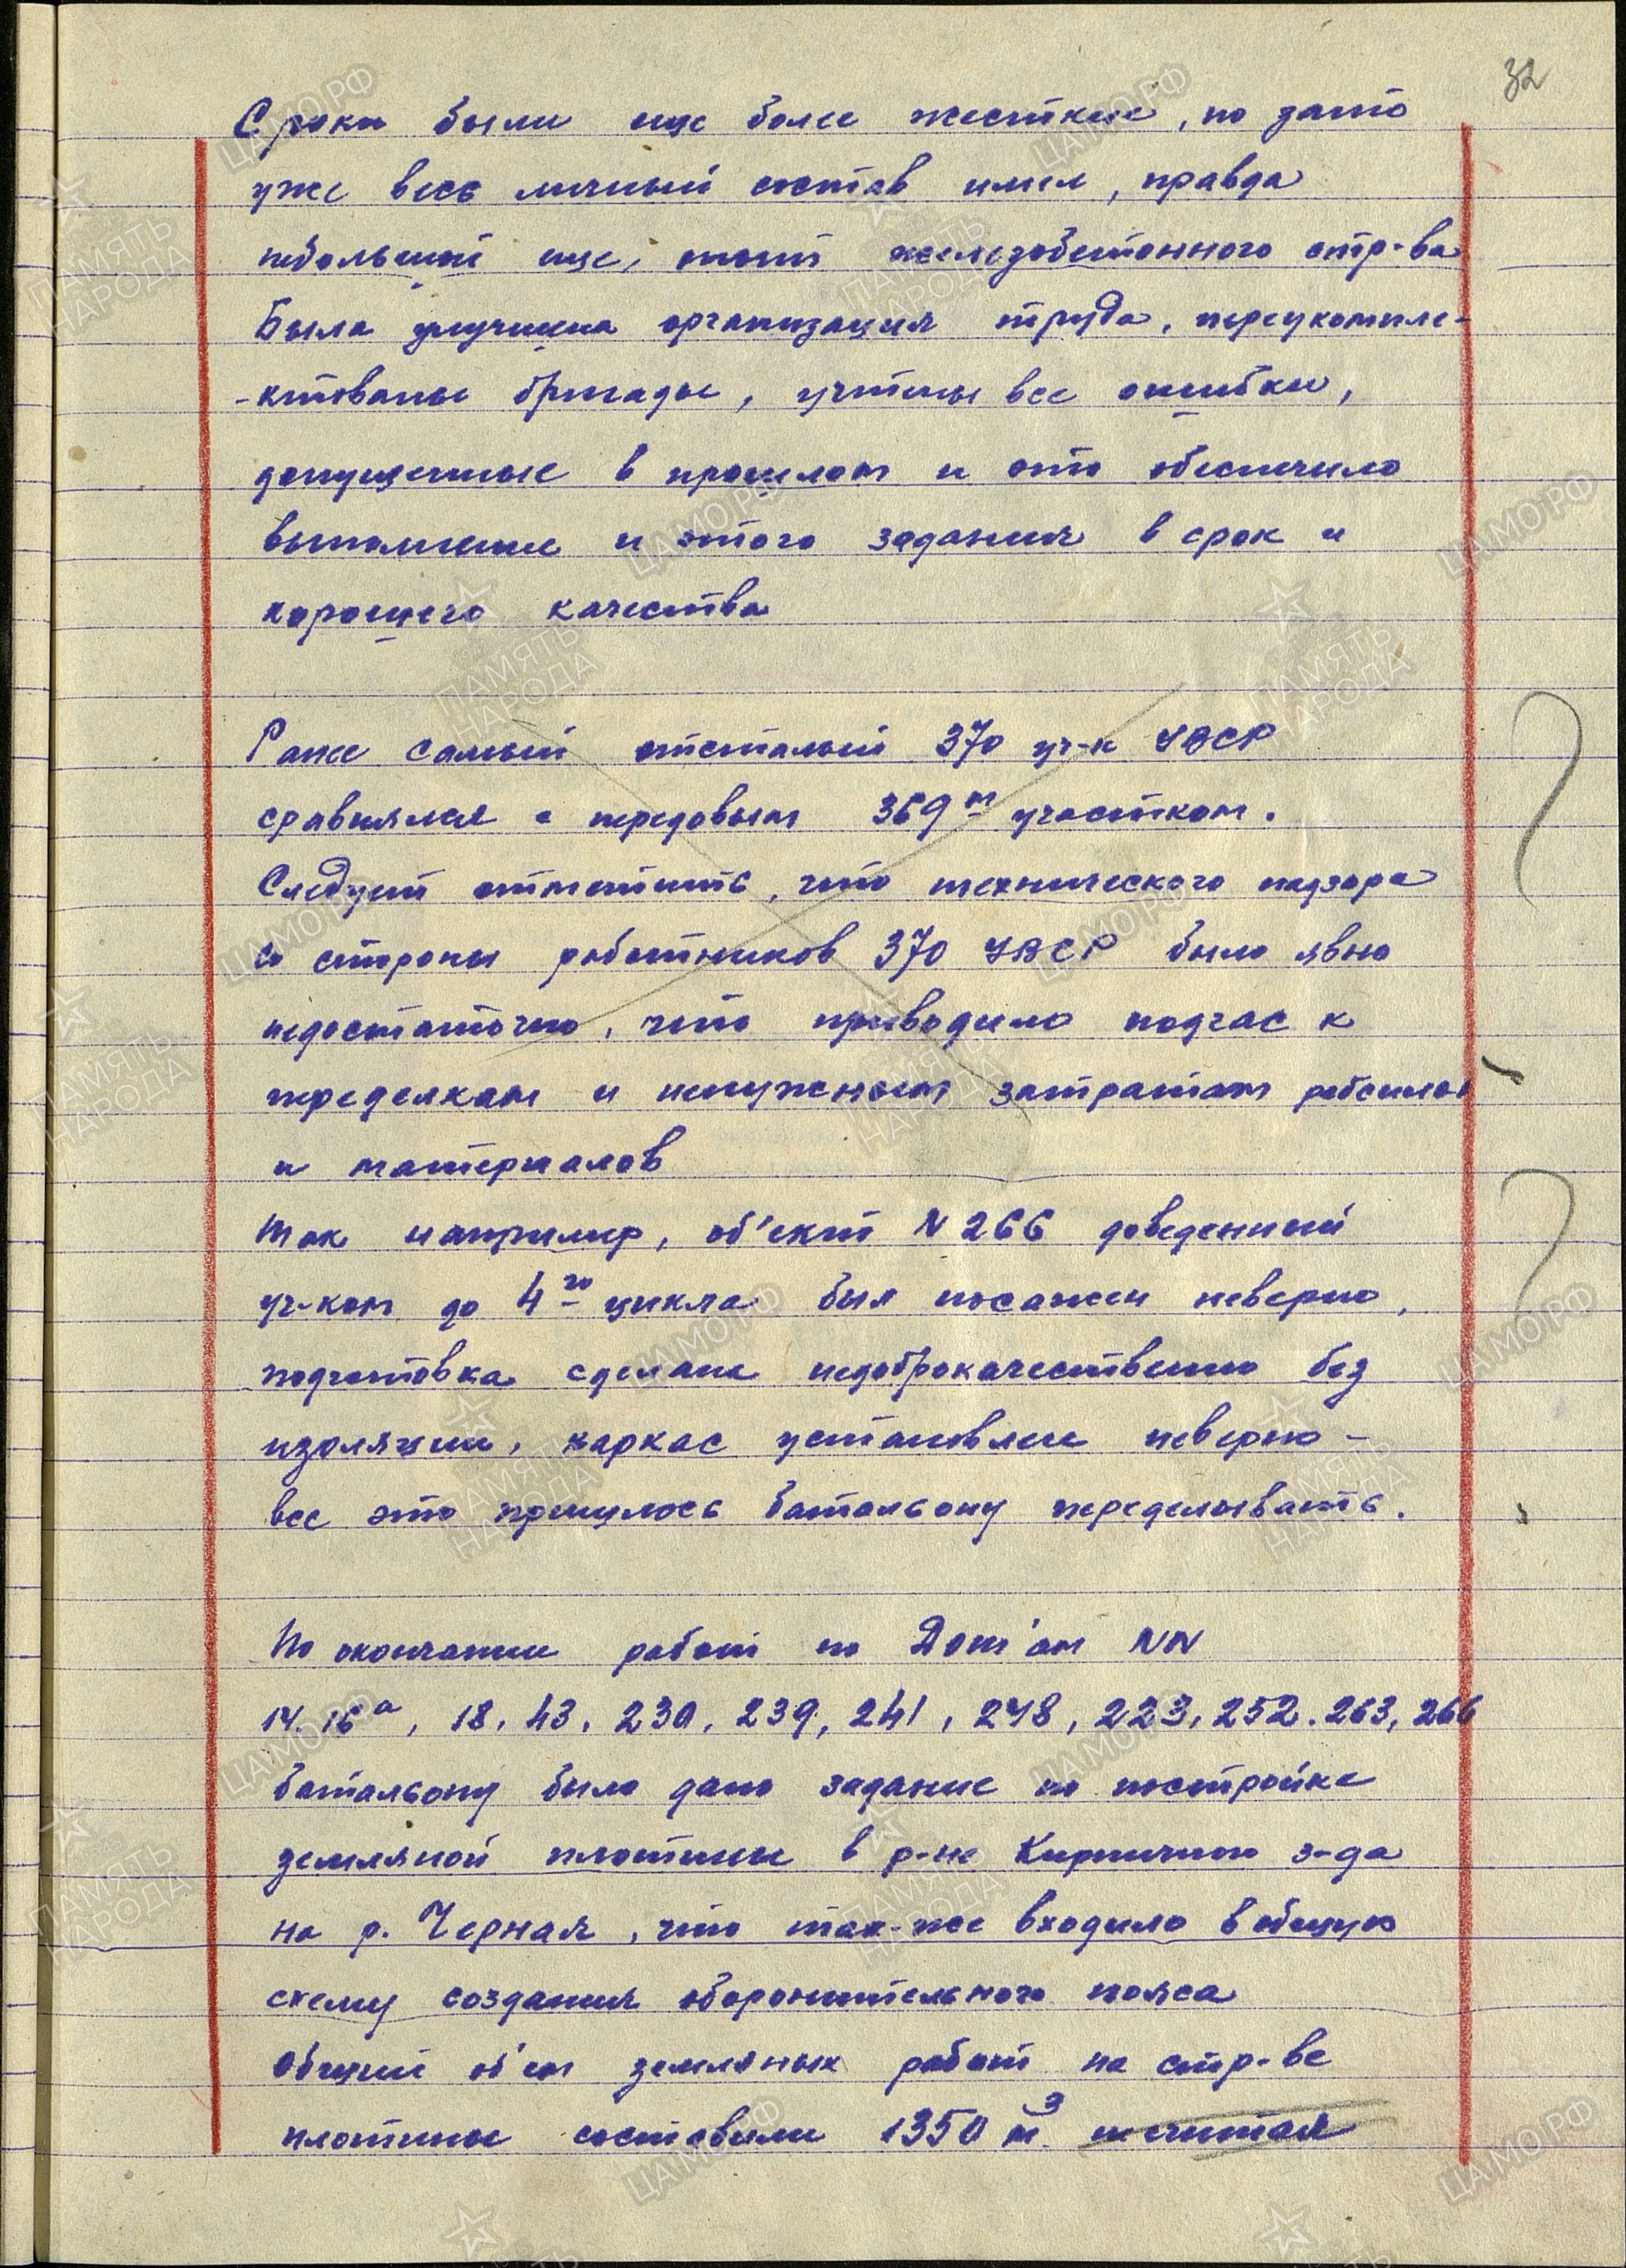 32
Сроки были еще более жесткие, но зато
уже весь личный состав имел, правда
небольшой еще, опыт железобетонного стр-ва
Была улучшена организация труда, переукомпле-
-ктованы бригады, учтены все ошибки,
допущенные в прошлом и это обеспечило
выполнение и этого задания в срок и
хорошего качества
Ранее самый отсталый 370 уч-к УВСР
сравнялся с передовым 369м участком.
Следует отметить, что технического надзора
со стороны работников 370 УВСР было явно
недостаточно, что приводило подчас к
переделкам и ненужным затратам рабсилы
и материалов
Так например, об'ект N 266 доведенный
уч-ком до 4го цикла был посажен неверно,
подготовка сделана недоброкачественно без
изоляции, каркас установлен неверно -
все это пришлось батальону переделывать.
По окончании работ по Дот'ам NN
14. 16а, 18. 43. 230. 239, 241, 248, 223, 252. 263, 266
батальону было дано задание по постройке
земляной плотины в р-не Кирпичного з-да
на р. Черная, что так-же входило в общую
схему создания оборонительного пояса
Общий об'ем земляных работ на стр-ве
плотины составили 1350 м3 не считая
ЦАМО.РФ
ПАМЯТЬ
НАРОДА